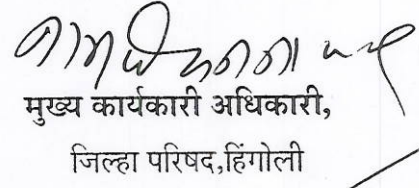 मुख्य कार्यकारी अधिकारी,
जिल्हा परिषद,हिंगोली